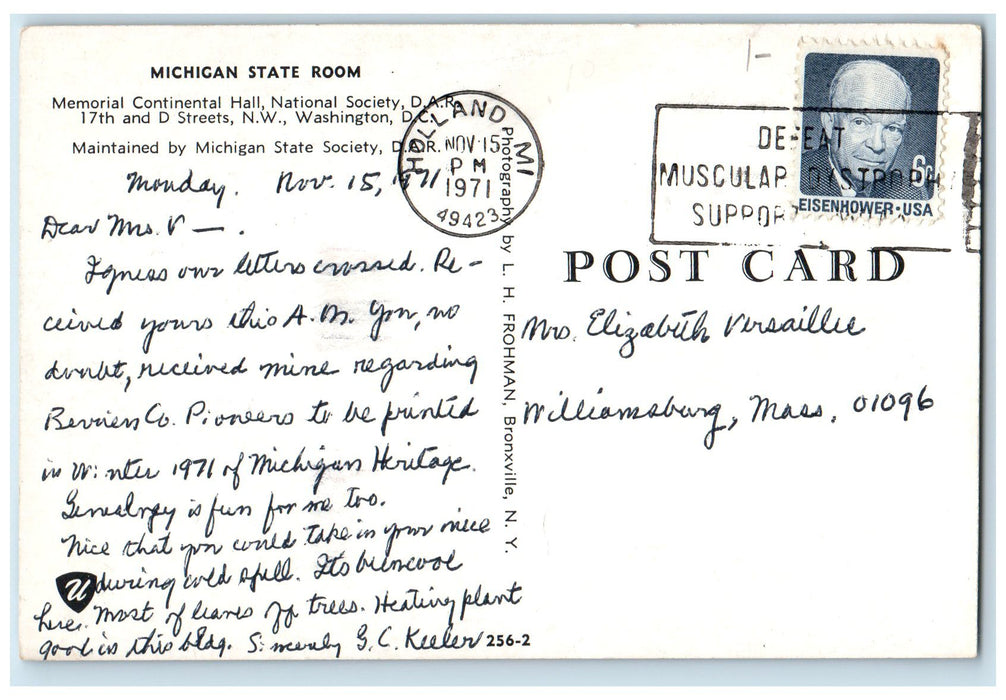 MICHIGAN STATE ROOM
Memorial Continental Hall, National Society, D.A.R.
17th and D Streets, N.W., Washington, D.C.
Maintained by Michigan State Society, D.A.R.
Monday. Nov. 15, 1971
Dear Mrs. V —.
I guess our letters crossed. Re-
ceived yours this A.M. You, no
doubt, received mine regarding
Berrien Co. Pioneers to be printed
in Winter 1971 of Michigan Heritage.
Genealogy is fun for me too.
Nice that you could take in your niece
during cold spell. Its been cool
here. Most of leaves off trees. Heating plant
good in this bldg. Sincerely G.C. Keeler
U
256-2
Photography by L. H. FROHMAN, Bronxville, N. Y.
HOLLAND, MI
NOV 15
PM
1971
49423
1-
DEFEAT
MUSCULAR DYSTROPH
SUPPORT
6c
EISENHOWER·USA
POST CARD
Mrs. Elizabeth Versailles
Williamsburg, Mass. 01096